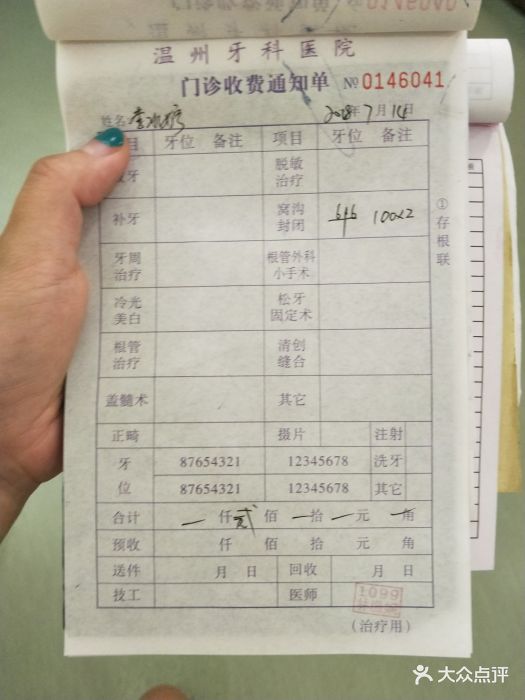 0146040
温州牙科医院
门诊收费通知单 №0146041
姓名 2018年7月14日
项目 牙位 备注 项目 牙位 备注
拔牙 脱敏治疗
补牙 窝沟封闭 6+6 100×2
牙周治疗 根管外科小手术
冷光美白 松牙固定术
根管治疗 清创缝合
盖髓术 其它
正畸 摄片 注射
牙位 87654321 12345678 洗牙
87654321 12345678 其它
合计 仟 贰 佰 拾 元 角
预收 仟 佰 拾 元 角
送件 月 日 回收 月 日
技工 医师 1099
(治疗用)
①存根联
大众点评